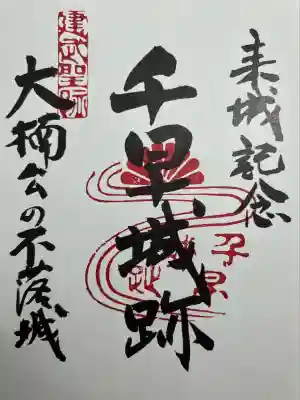 来城記念
千早城跡
大楠公の不落城
建武聖跡